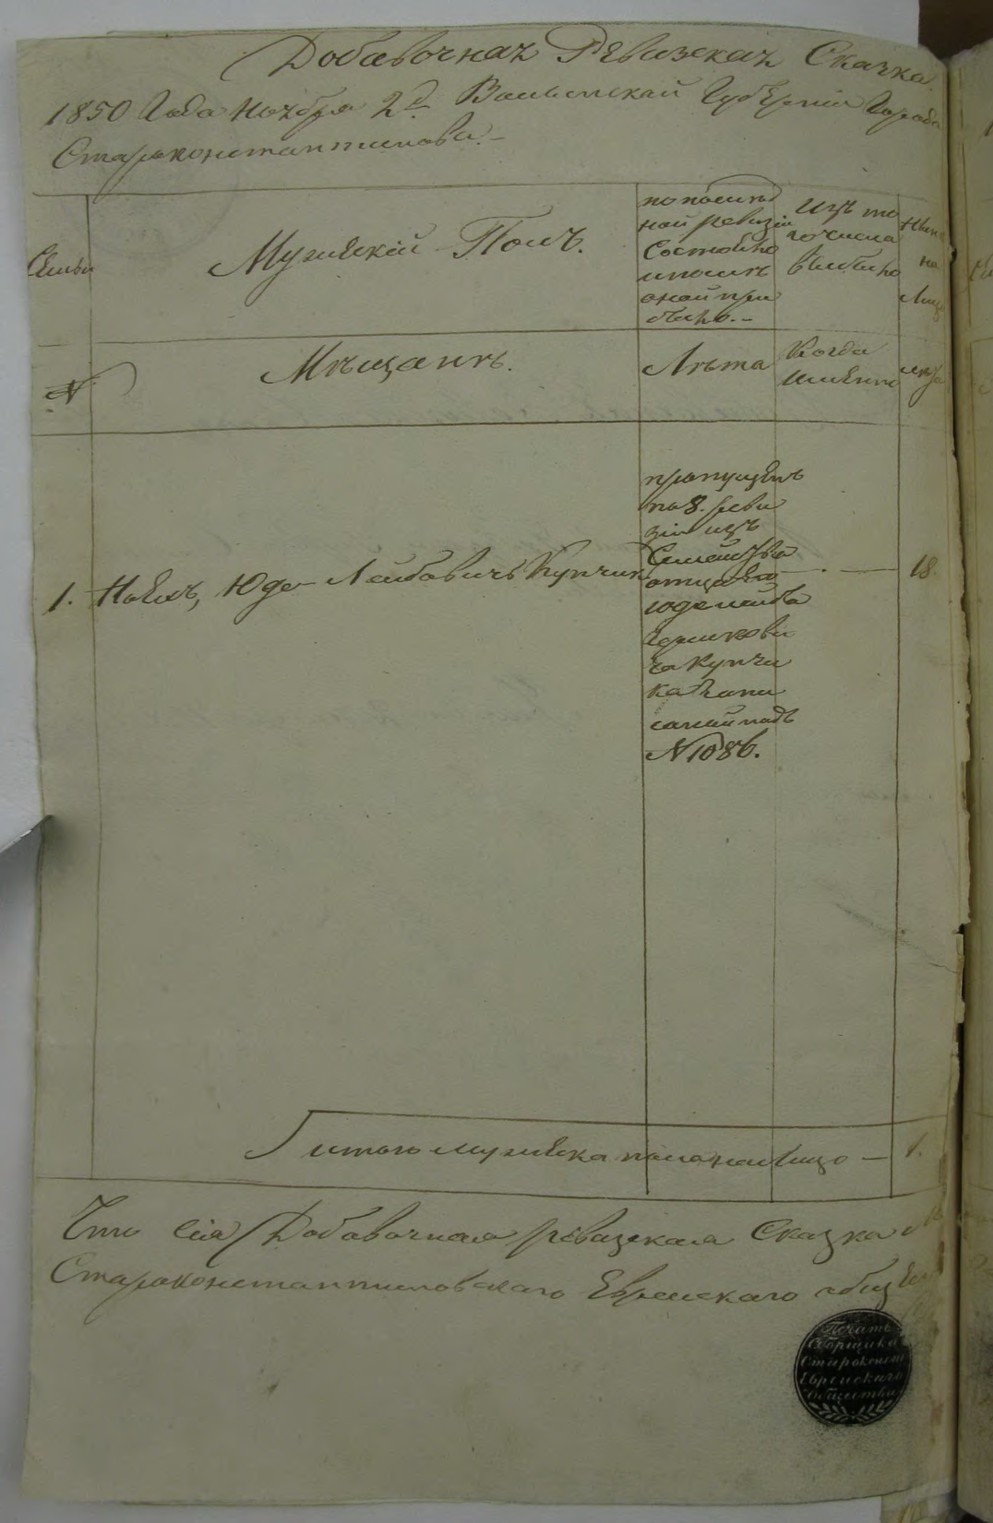 Добавочная Ревизская Сказка
1850 Года Ноября 2 д. Волынской Губерніи Города
Староконстантинова.
Семьи
Мужескій Полъ.
по послѣд
ней ревизіи
Состояло
и послѣ
оной при
было.
Изъ то
го числа
выбыло
Нынѣ
на
Лицо
№
Мѣщанъ.
Лѣта
Когда
именно
лѣта
1. Юде Лейбовичъ Купчик
пропущенъ
по 8. реви
зіи изъ
Семейства
отца его
Юделейба
Берковича
Купчи
ка
запи
саный подъ
№ 1086.
18.
итого мужеска пола на лицо — 1.
Что сія Добавочная ревизская Сказка
Староконстантиновскаго Еврейскаго общ
Печать
Сборщика
Староконст
Еврейскаго
Общества